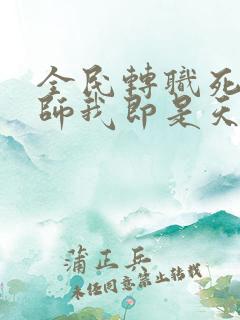 全民轉職死
師我即是天
蒲正兵
未任同意禁止转载